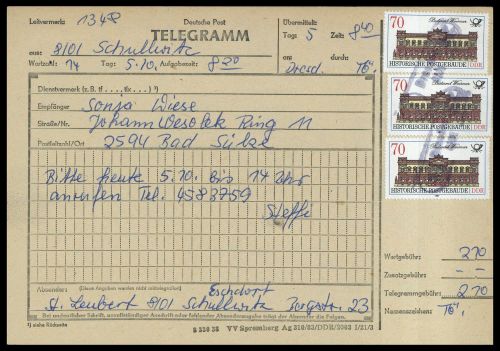 Leitvermerk: 134P
Deutsche Post
TELEGRAMM
Übermittelt:
Tag: 5 Zeit: 8 40
aus: 8101 Schullwitz
an: Dresd. durch:
Wortzahl: 14 Tag: 5.10. Aufgabezeit: 8 20
Dienstvermerk (z. B. tf...., tlx....)
Empfänger Sonja Wiese
Straße/Nr. Johann Wesolek Ring 11
Postleitzahl/Ort 2594 Bad Sülze
Bitte heute 5.10. bis 14 Uhr
anrufen Tel. 4583759
Steffi
Absender: (Diese Angaben werden nicht mittelegrafiert)
A. Leubert 8101 Schullwitz Bergstr. 23
Bei undeutlicher Schrift, unvollständiger Anschrift oder fehlender Absenderangabe trägt der Absender die Folgen.
*) siehe Rückseite
VV Spremberg Ag 310/83/DDR/2003 I/21/3
70 Postamt Weimar
HISTORISCHE POSTGEBÄUDE DDR
70 Postamt Weimar
HISTORISCHE POSTGEBÄUDE DDR
70 Postamt Weimar
HISTORISCHE POSTGEBÄUDE DDR
Wortgebühr: 210
Zusatzgebühr: - -
Telegrammgebühr: 210
Namenszeichen: